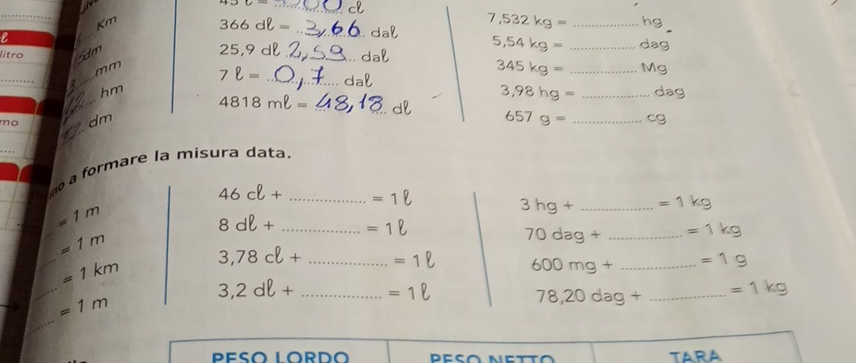 cl
366 dl = 3,66 dal
25,9 dl 2,59 dal
7 l = 0,7 dal
4818 ml = 48,18 dl
7,532 kg = ............ hg
5,54 kg = ............ dag
345 kg = ............ Mg
3,98 hg = ............ dag
657 g = ............ cg
km
dm
mm
hm
dm
litro
mo
a formare la misura data.
= 1 m
= 1 m
= 1 km
= 1 m
46 cl + ............ = 1 l
8 dl + ............ = 1 l
3,78 cl + ............ = 1 l
3,2 dl + ............ = 1 l
3 hg + ............ = 1 kg
70 dag + ............ = 1 kg
600 mg + ............ = 1 g
78,20 dag + ............ = 1 kg
PESO LORDO PESO NETTO TARA